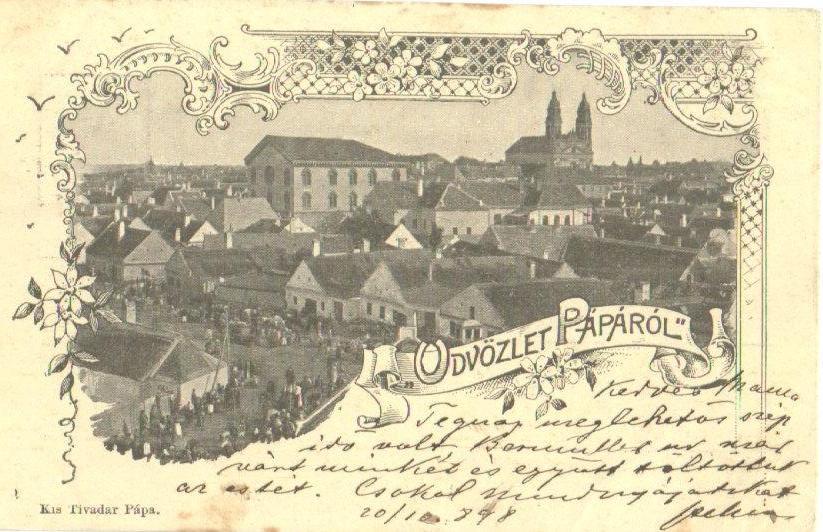 „ÜDVÖZLET PÁPÁRÓL"
Kedves Mama
Tegnap meglehetős szep
ido volt Bermüller ur már
várt minket és együtt töltöttük
az estét. Csokol mindnyájatokat
20/10 898
Kis Tivadar Pápa.